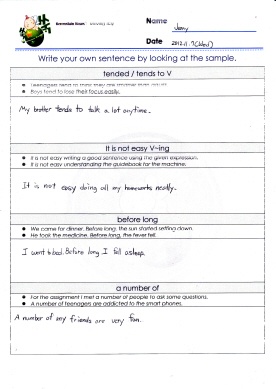 Name
Jenny
Date 2012.11.7(Wed)
Write your own sentence by looking at the sample.
tended / tends to V
Teenagers tend to think they are smarter than adults.
Boys tend to lose their focus easily.
My brother tends to talk a lot anytime.
It is not easy V~ing
It is not easy writing a good sentence using the given expression.
It is not easy understanding the guidebook for the machine.
It is not easy doing all my homeworks neatly.
before long
We came for dinner. Before long, the sun started setting down.
He took the medicine. Before long, the fever fell.
I went to bed. Before long I fell asleep.
a number of
For the assignment I met a number of people to ask some questions.
A number of teenagers are addicted to the smart phones.
A number of my friends are very fun.